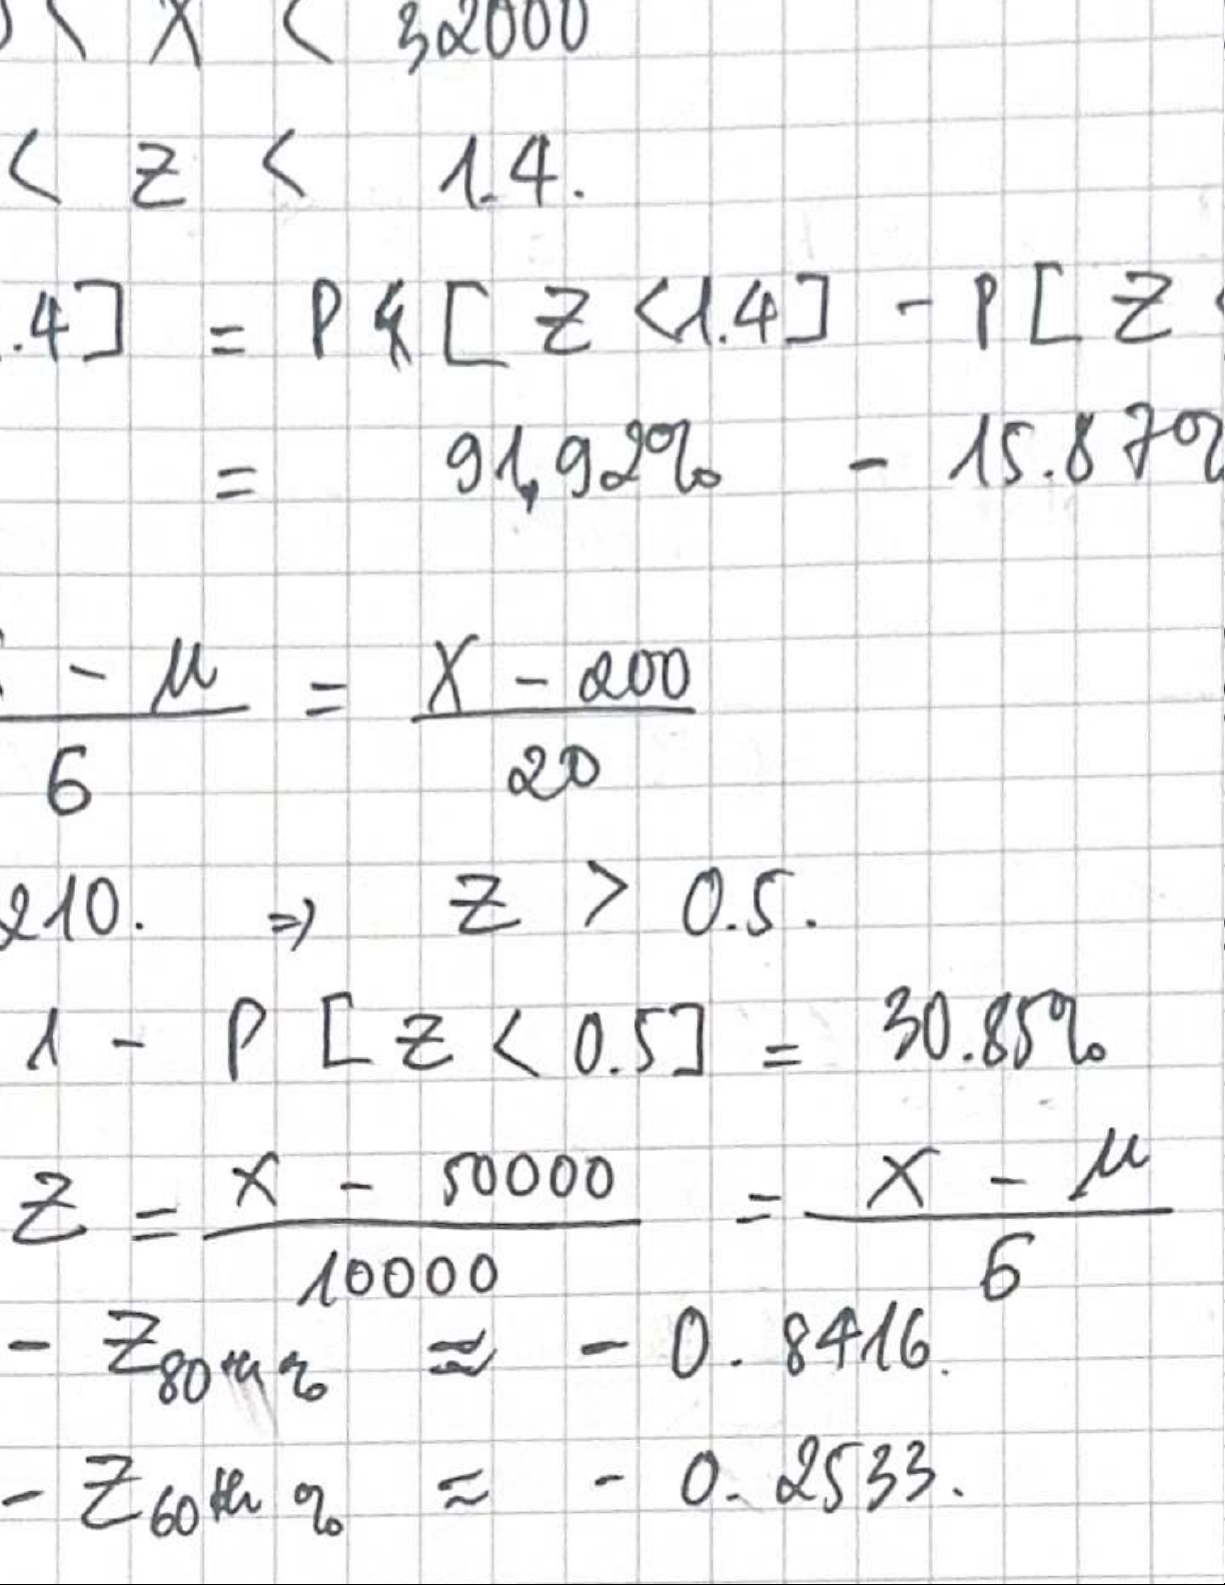 < X < 32000
< Z < 1.4.
.4] = P [ Z < 1.4 ] - P [ Z <
= 91,92% - 15.87%
- μ = X - 200
6 20
210. => Z > 0.5.
1 - P [ Z < 0.5 ] = 30.85%
Z = X - 50000 = X - μ
10000 6
- Z80th % ≈ - 0.8416.
- Z60th % ≈ - 0.2533.